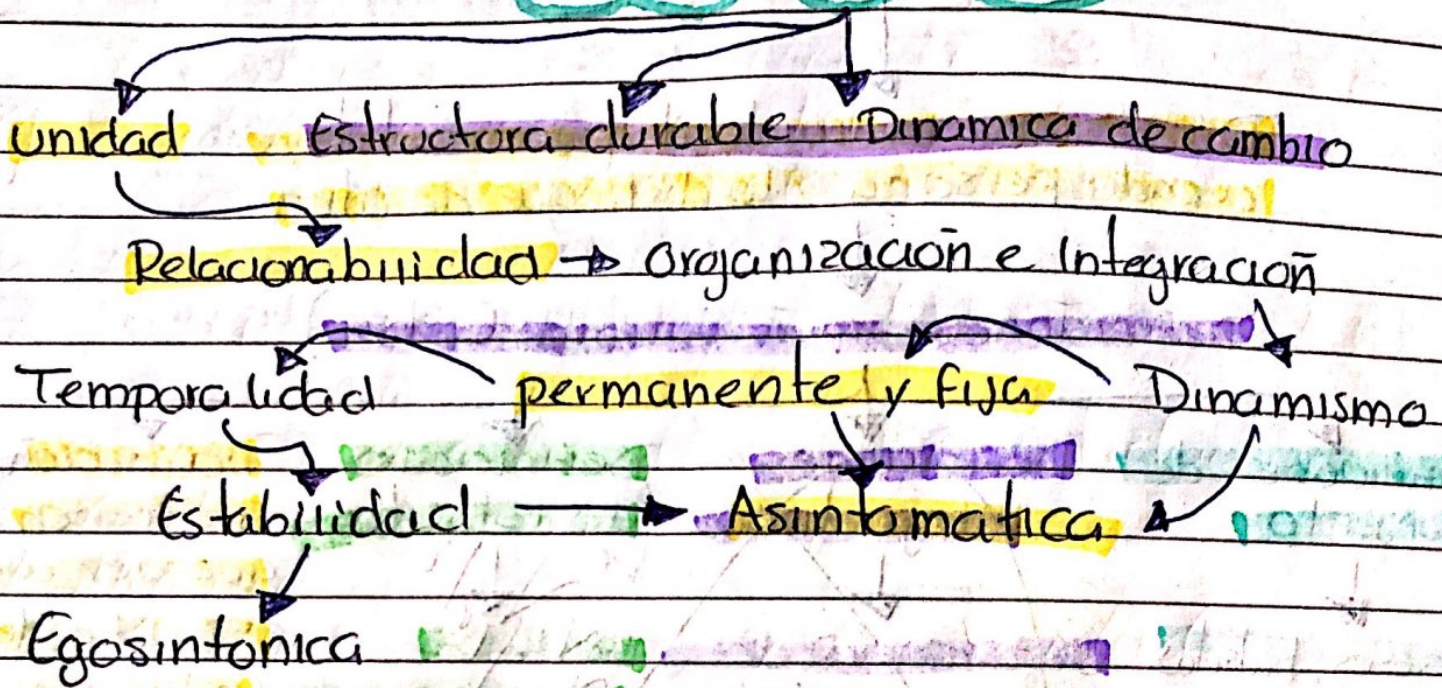 unidad Estructura durable Dinamica de cambio
Relacionabilidad → organización e Integración
Temporalidad permanente y fija Dinamismo
Estabilidad → Asintomatica
Egosintonica